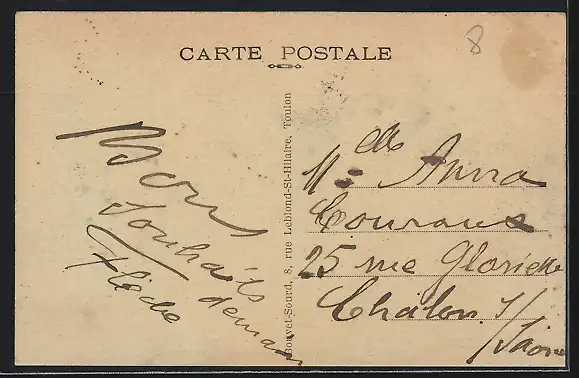 CARTE POSTALE
8
Bons
Souhaits
demain
Bouvet-Sourd, 8, rue Leblond-St-Hilaire, Toulon
Melle Anna
25 rue Gloriette
Châlon s/
/Saône